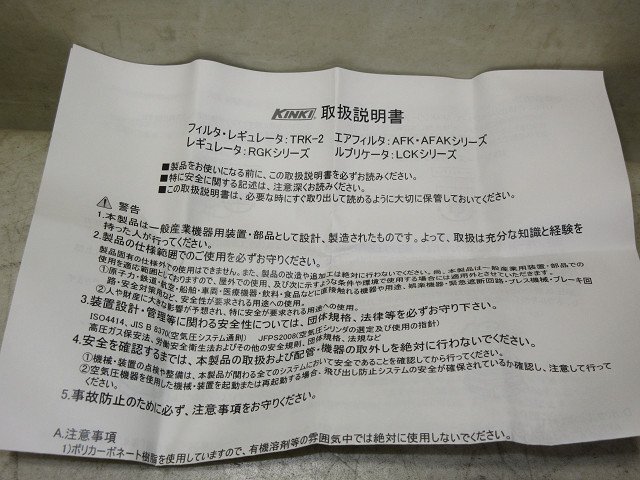 KINKI 取扱説明書
フィルタ・レギュレータ:TRK-2 エアフィルタ:AFK・AFAKシリーズ
レギュレータ:RGKシリーズ ルブリケータ:LCKシリーズ
■製品をお使いになる前に、この取扱説明書を必ずお読みください。
■特に安全に関する記述は、注意深くお読みください。
■この取扱説明書は、必要な時にすぐ取り出して読めるように大切に保管しておいてください。
⚠ 警告
1.本製品は一般産業機器用装置・部品として設計、製造されたものです。よって、取扱は充分な知識と経験を
持った人が行ってください。
2.製品の仕様範囲でのご使用を必ずお守りください。
製品固有の仕様外での使用はできません。また、製品の改造や追加工は絶対に行わないでください。尚、本製品は一般産業用装置・部品での
使用を適応範囲としておりますので、屋外での使用、及び次に示すような条件や環境で使用する場合には適用外とさせていただきます。
①原子力・鉄道・航空・船舶・車両・医療機器・飲料・食品などに直接触れる機器や用途、娯楽機器・緊急遮断回路・プレス機械・ブレーキ回
路・安全対策用など、安全性が要求される用途への使用。
②人や財産に大きな影響が予想され、特に安全が要求される用途への使用。
3.装置設計・管理等に関わる安全性については、団体規格、法律等を必ずお守り下さい。
ISO4414、JIS B 8370(空気圧システム通則) JFPS2008(空気圧シリンダの選定及び使用の指針)
高圧ガス保安法、労働安全衛生法およびその他の安全規則、団体規格、法規など
4.安全を確認するまでは、本製品の取扱及び配管・機器の取外しを絶対に行わないでください。
①機械・装置の点検や整備は、本製品が関わる全てのシステムにおいて安全であることを確認してから行ってください。
②空気圧機器を使用した機械・装置を起動または再起動する場合、飛び出し防止システムの安全が確保されているか確認し、注意して行って
ください。
5.事故防止のために必ず、注意事項をお守りください。
A.注意事項
1)ポリカーボネート樹脂を使用していますので、有機溶剤等の雰囲気中では絶対に使用しないでください。